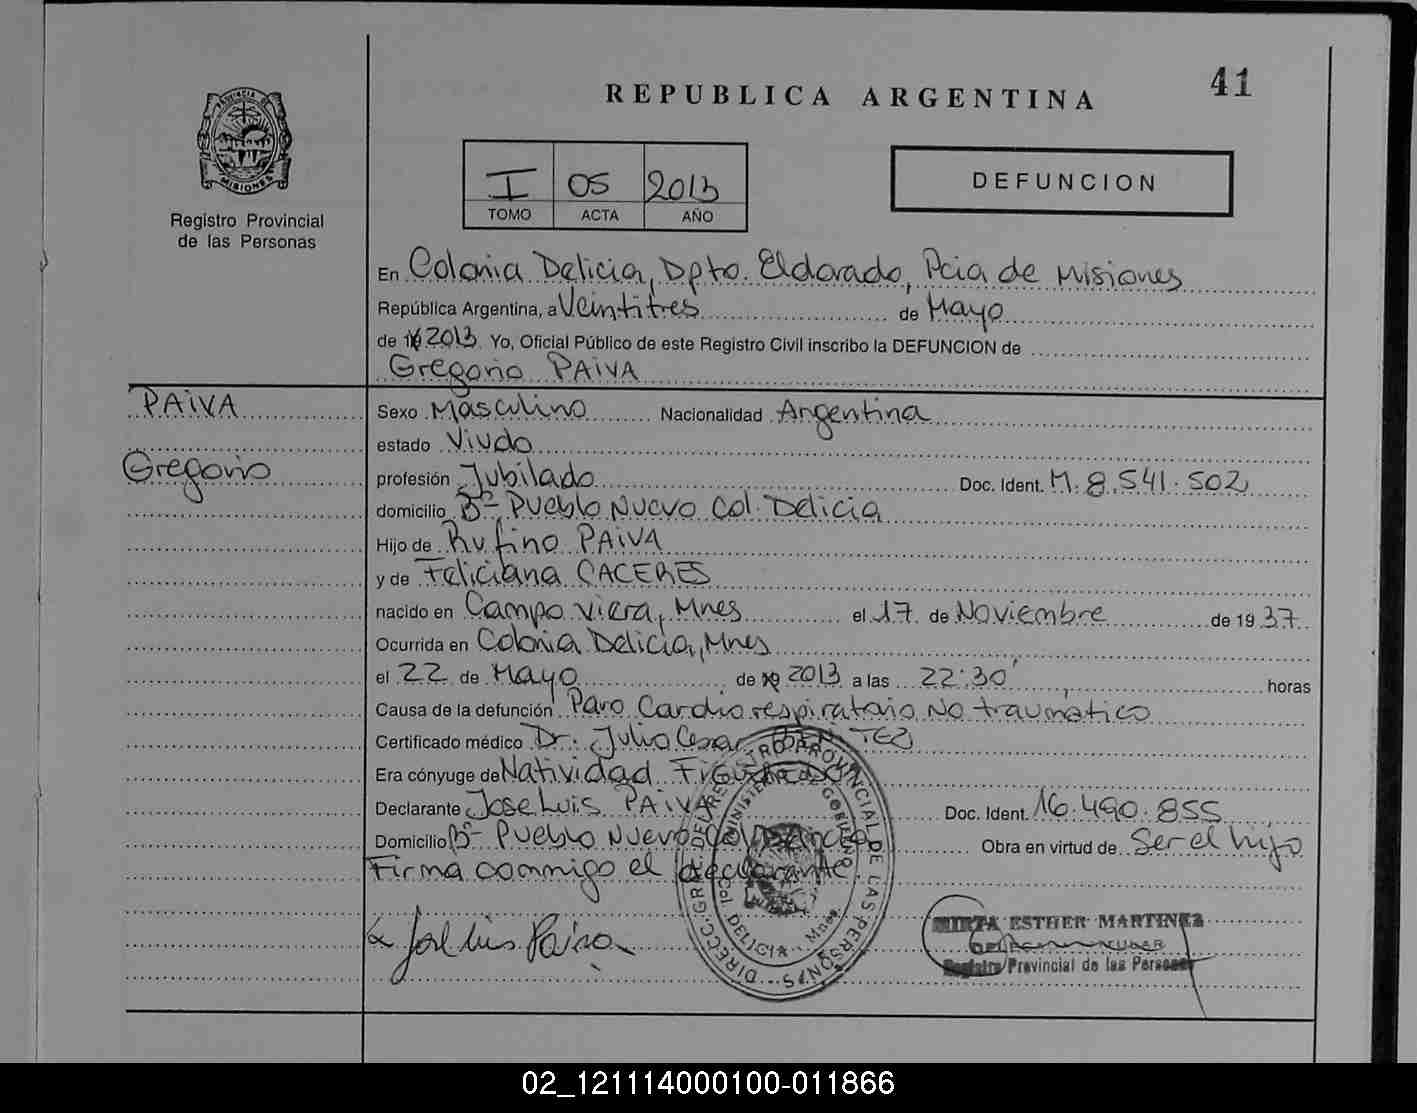 41
REPUBLICA ARGENTINA
PROVINCIA DE
MISIONES
Registro Provincial
de las Personas
I 05 2013
TOMO ACTA AÑO
DEFUNCION
En Colonia Delicia, Dpto. Eldorado, Pcia de Misiones
República Argentina, a Veintitres de Mayo
de 19 2013 Yo, Oficial Público de este Registro Civil inscribo la DEFUNCION de
Gregorio PAIVA
PAIVA
Gregorio
Sexo Masculino Nacionalidad Argentina
estado Viudo
profesión Jubilado Doc. Ident. M. 8.541.502
domicilio Bº Pueblo Nuevo Col. Delicia
Hijo de Rufino PAIVA
y de Feliciana CACERES
nacido en Campo Viera, Mnes el 17 de Noviembre de 19 37
Ocurrida en Colonia Delicia, Mnes
el 22 de Mayo de 19 2013 a las 22:30' horas
Causa de la defunción Paro Cardiorespiratorio No traumatico
Certificado médico Dr. Julio Cesar BENITEZ
Era cónyuge de Natividad
Declarante Jose Luis PAIVA Doc. Ident. 16.490.855
Domicilio Bº Pueblo Nuevo Col Delicia Obra en virtud de Ser el hijo
Firma conmigo el declarante
Jose Luis Paiva
DIRECC. GRAL. DEL REGISTRO PROVINCIAL DE LAS PERSONAS
MINISTERIO DE GOBIERNO
Col. DELICIA - Mnes.
MIRTA ESTHER MARTINEZ
Registro Provincial de las Personas
02_121114000100-011866